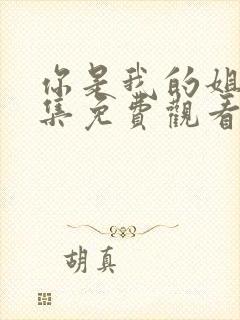 你是我的姐
集免費觀看
胡真